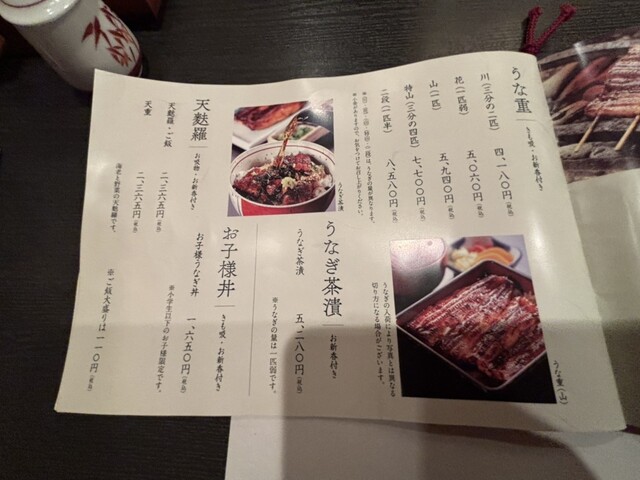 うな重
きも吸・お新香付き
川（三分の二匹） 四、一八〇円（税込）
花（一匹弱） 五、〇六〇円（税込）
山（一匹） 五、九四〇円（税込）
特山（三分の四匹） 七、七〇〇円（税込）
二段（一匹半） 八、五八〇円（税込）
うなぎの入荷により写真とは異なる
切り方になる場合がございます。
うな重（山）
うなぎ茶漬
お新香付き
うなぎ茶漬 五、二八〇円（税込）
※うなぎの量は一匹弱です。
うなぎ茶漬
天麩羅
お吸物・お新香付き
天麩羅・ご飯 二、三六五円（税込）
天重 二、三六五円（税込）
海老と野菜の天麩羅です。
お子様丼
きも吸・お新香付き
お子様うなぎ丼 一、六五〇円（税込）
※小学生以下のお子様限定です。
※ご飯大盛りは一一〇円（税込）